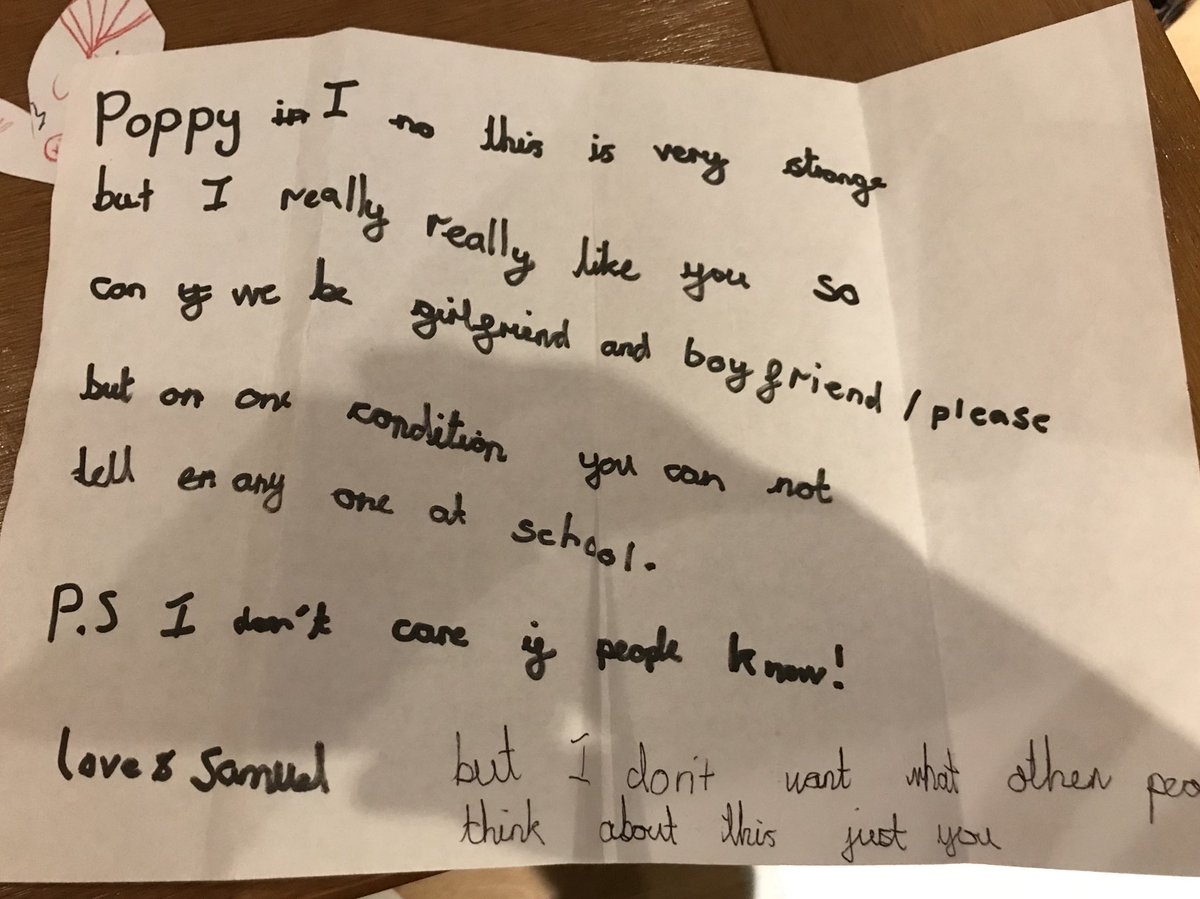 Poppy in I no this is very strange
but I really really like you so
can y we be girlfriend and boyfriend / please
but on one condition you can not
tell en any one at school.
P.S I don't care if people know!
love s Samuel
but I don't want what other peo
think about this just you